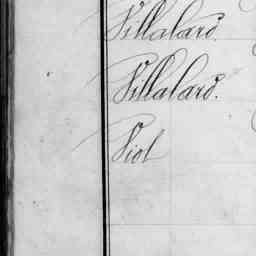 Villalard.
Villalard.
Viol